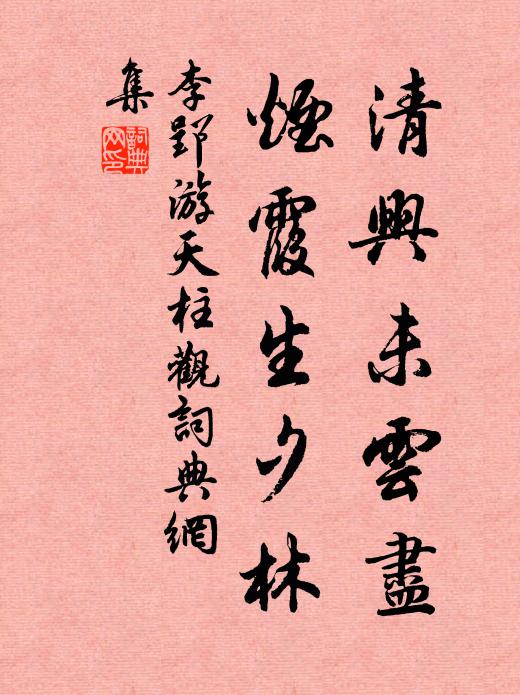 清興未雲盡
煙霞生夕林
李郢游天柱觀詞典網
集
詞典网印